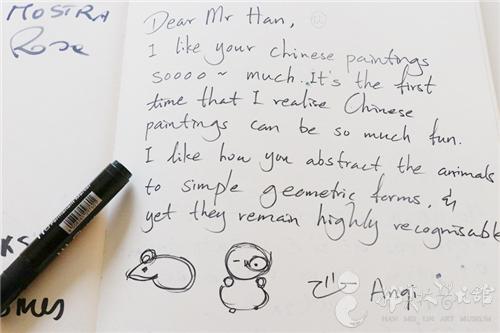 MOSTRA
Rosa
Dear Mr Han,
I like your chinese paintings
soooo~ much. It's the first
time that I realise Chinese
paintings can be so much fun.
I like how you abstract the animals
to simple geometric forms, &
yet they remain highly recognisable
Anqi
韩美林艺术馆
HAN MEI LIN ART MUSEUM